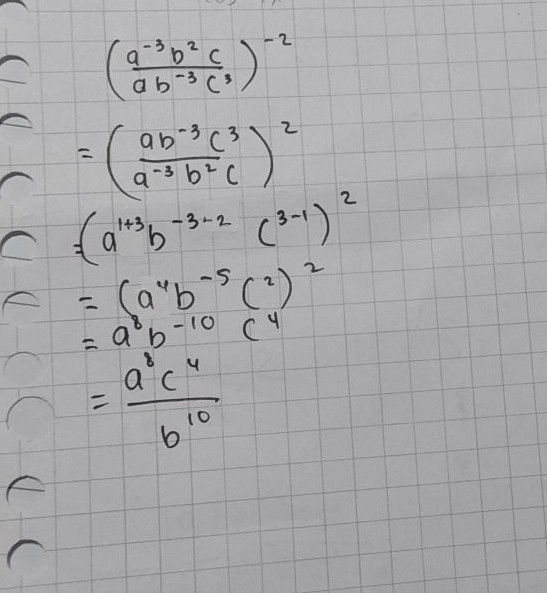 (a⁻³b²c / ab⁻³c³)⁻²
= (ab⁻³c³ / a⁻³b²c)²
= (a¹⁺³b⁻³⁻² c³⁻¹)²
= (a⁴b⁻⁵c²)²
= a⁸b⁻¹⁰ c⁴
= a⁸c⁴ / b¹⁰